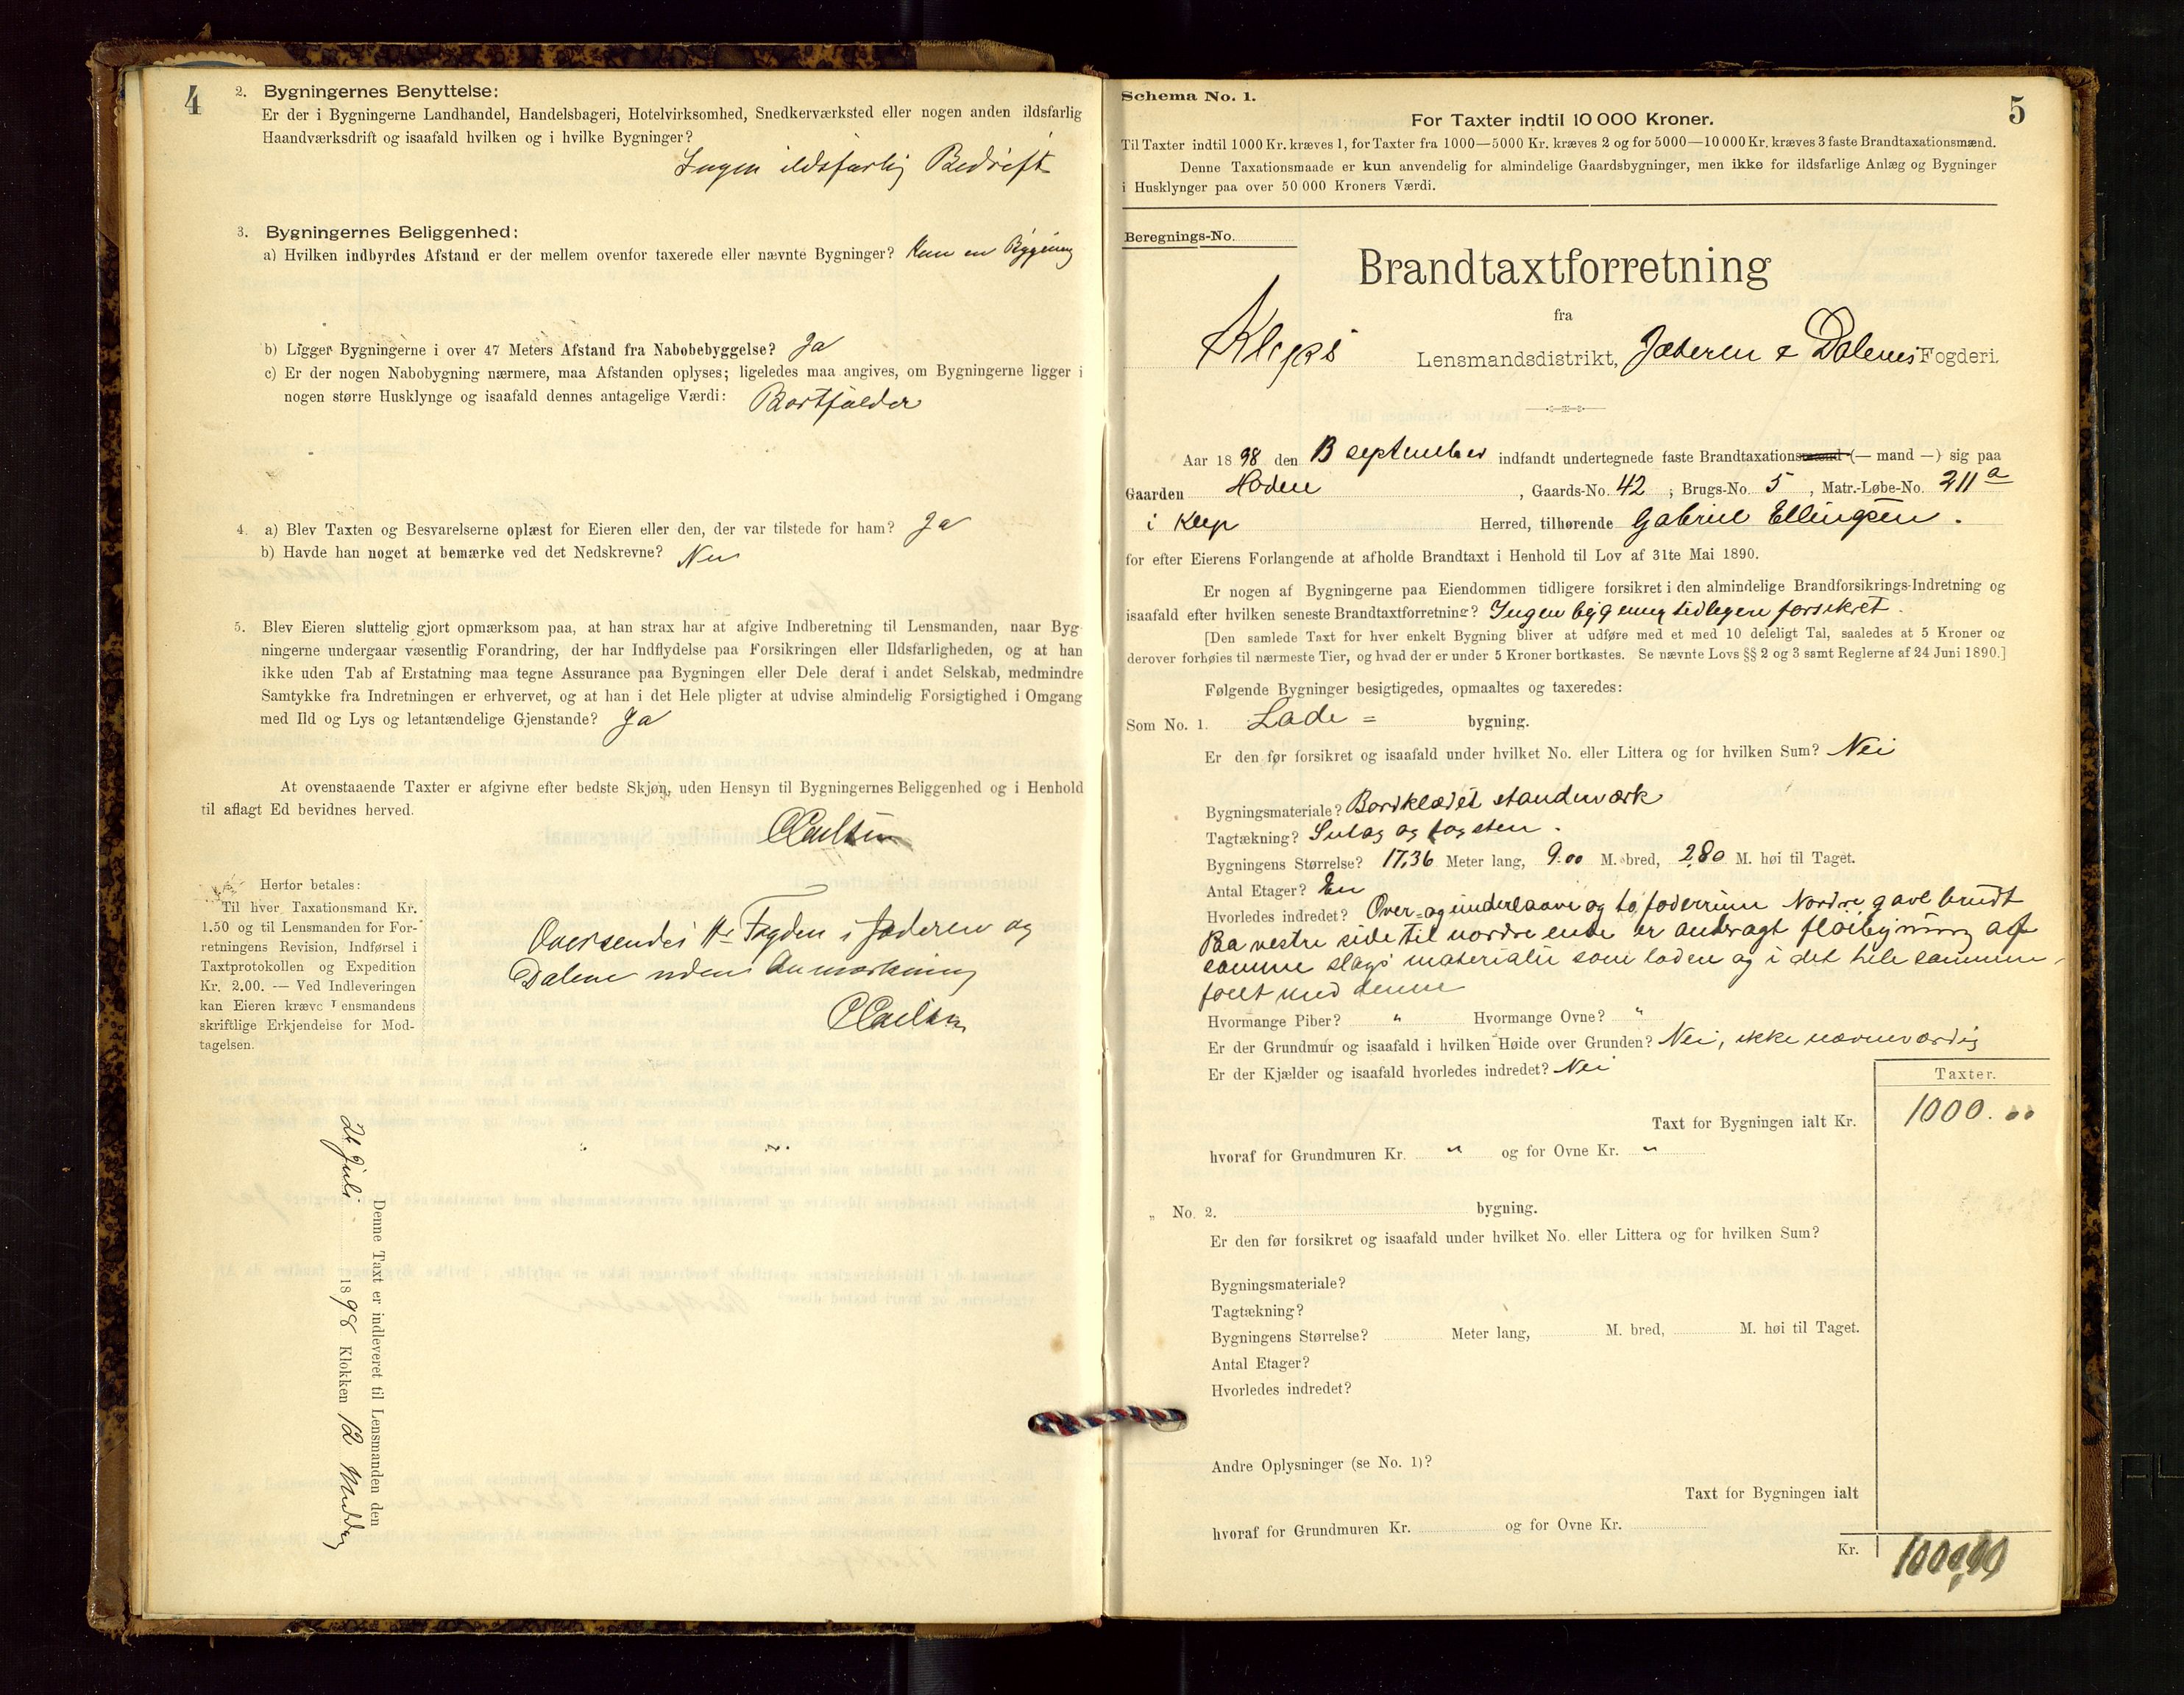 4
2. Bygningernes Benyttelse:
Er der i Bygningerne Landhandel, Handelsbageri, Hotelvirksomhed, Snedkerværksted eller nogen anden ildsfarlig
Haandværksdrift og isaafald hvilken og i hvilke Bygninger?
Ingen ildsfarlig Bedrift
3. Bygningernes Beliggenhed:
a) Hvilken indbyrdes Afstand er der mellem ovenfor taxerede eller nævnte Bygninger? Kun en Bygning
b) Ligger Bygningerne i over 47 Meters Afstand fra Nabobebyggelse? Ja
c) Er der nogen Nabobygning nærmere, maa Afstanden oplyses; ligeledes maa angives, om Bygningerne ligger i
nogen større Husklynge og isaafald dennes antagelige Værdi: Bortfalder
4. a) Blev Taxten og Besvarelserne oplæst for Eieren eller den, der var tilstede for ham? Ja
b) Havde han noget at bemærke ved det Nedskrevne? Nei
5. Blev Eieren sluttelig gjort opmærksom paa, at han strax har at afgive Indberetning til Lensmanden, naar Byg-
ningerne undergaar væsentlig Forandring, der har Indflydelse paa Forsikringen eller Ildsfarligheden, og at han
ikke uden Tab af Erstatning maa tegne Assurance paa Bygningen eller Dele deraf i andet Selskab, medmindre
Samtykke fra Indretningen er erhvervet, og at han i det Hele pligter at udvise almindelig Forsigtighed i Omgang
med Ild og Lys og letantændelige Gjenstande? Ja
At ovenstaaende Taxter er afgivne efter bedste Skjøn, uden Hensyn til Bygningernes Beliggenhed og i Henhold
til aflagt Ed bevidnes herved.
Herfor betales:
Til hver Taxationsmand Kr.
1.50 og til Lensmanden for For-
retningens Revision, Indførsel i
Taxtprotokollen og Expedition
Kr. 2.00. — Ved Indleveringen
kan Eieren kræve Lensmandens
skriftlige Erkjendelse for Mod-
tagelsen.
Oversendes Hr Fogden i Jæderen og
Dalene uden Anmærkning
Denne Taxt er indleveret til Lensmanden den
24 Juli 1898 Klokken 12 Middag
5
Schema No. 1.
For Taxter indtil 10 000 Kroner.
Til Taxter indtil 1000 Kr. kræves 1, for Taxter fra 1000—5000 Kr. kræves 2 og for 5000—10000 Kr. kræves 3 faste Brandtaxationsmænd.
Denne Taxationsmaade er kun anvendelig for almindelige Gaardsbygninger, men ikke for ildsfarlige Anlæg og Bygninger
i Husklynger paa over 50 000 Kroners Værdi.
Beregnings-No.
Brandtaxtforretning
fra
Kleps Lensmandsdistrikt, Jæderen & Dalenes Fogderi.
Aar 1898 den 13 september indfandt undertegnede faste Brandtaxationsmænd (— mand —) sig paa
Gaarden Hodne, Gaards-No. 42; Brugs-No. 5, Matr.-Løbe-No. 211a
i Klep Herred, tilhørende Gabriel Ellingsen.
for efter Eierens Forlangende at afholde Brandtaxt i Henhold til Lov af 31te Mai 1890.
Er nogen af Bygningerne paa Eiendommen tidligere forsikret i den almindelige Brandforsikrings-Indretning og
isaafald efter hvilken seneste Brandtaxtforretning? Ingen bygning tidligere forsikret.
[Den samlede Taxt for hver enkelt Bygning bliver at udføre med et med 10 deleligt Tal, saaledes at 5 Kroner og
derover forhøies til nærmeste Tier, og hvad der er under 5 Kroner bortkastes. Se nævnte Lovs §§ 2 og 3 samt Reglerne af 24 Juni 1890.]
Følgende Bygninger besigtigedes, opmaaltes og taxeredes:
Som No. 1. Lade = bygning.
Er den før forsikret og isaafald under hvilket No. eller Littera og for hvilken Sum? Nei
Bygningsmateriale? Bordklædet standerværk
Tagtækning? Sutag og tagsten.
Bygningens Størrelse? 17,36 Meter lang, 9.00 M. bred, 2,80 M. høi til Taget.
Antal Etager? En
Hvorledes indredet? Over- og underlaave og to foderrum Nordre gavl brudt
Paa vestre side til nordre ende er anbragt fløibygning af
samme slags materialier som laden og i det hele sammen-
føiet med denne
Hvormange Piber? " Hvormange Ovne? "
Er der Grundmur og isaafald i hvilken Høide over Grunden? Nei, ikke nævneværdig
Er der Kjælder og isaafald hvorledes indredet? Nei
Taxter.
Taxt for Bygningen ialt Kr. 1000.00
hvoraf for Grundmuren Kr. " og for Ovne Kr. "
„ No. 2. bygning.
Er den før forsikret og isaafald under hvilket No. eller Littera og for hvilken Sum?
Bygningsmateriale?
Tagtækning?
Bygningens Størrelse? Meter lang, M. bred, M. høi til Taget.
Antal Etager?
Hvorledes indredet?
Andre Oplysninger (se No. 1)?
Taxt for Bygningen ialt
hvoraf for Grundmuren Kr. og for Ovne Kr.
Kr. 1000,00